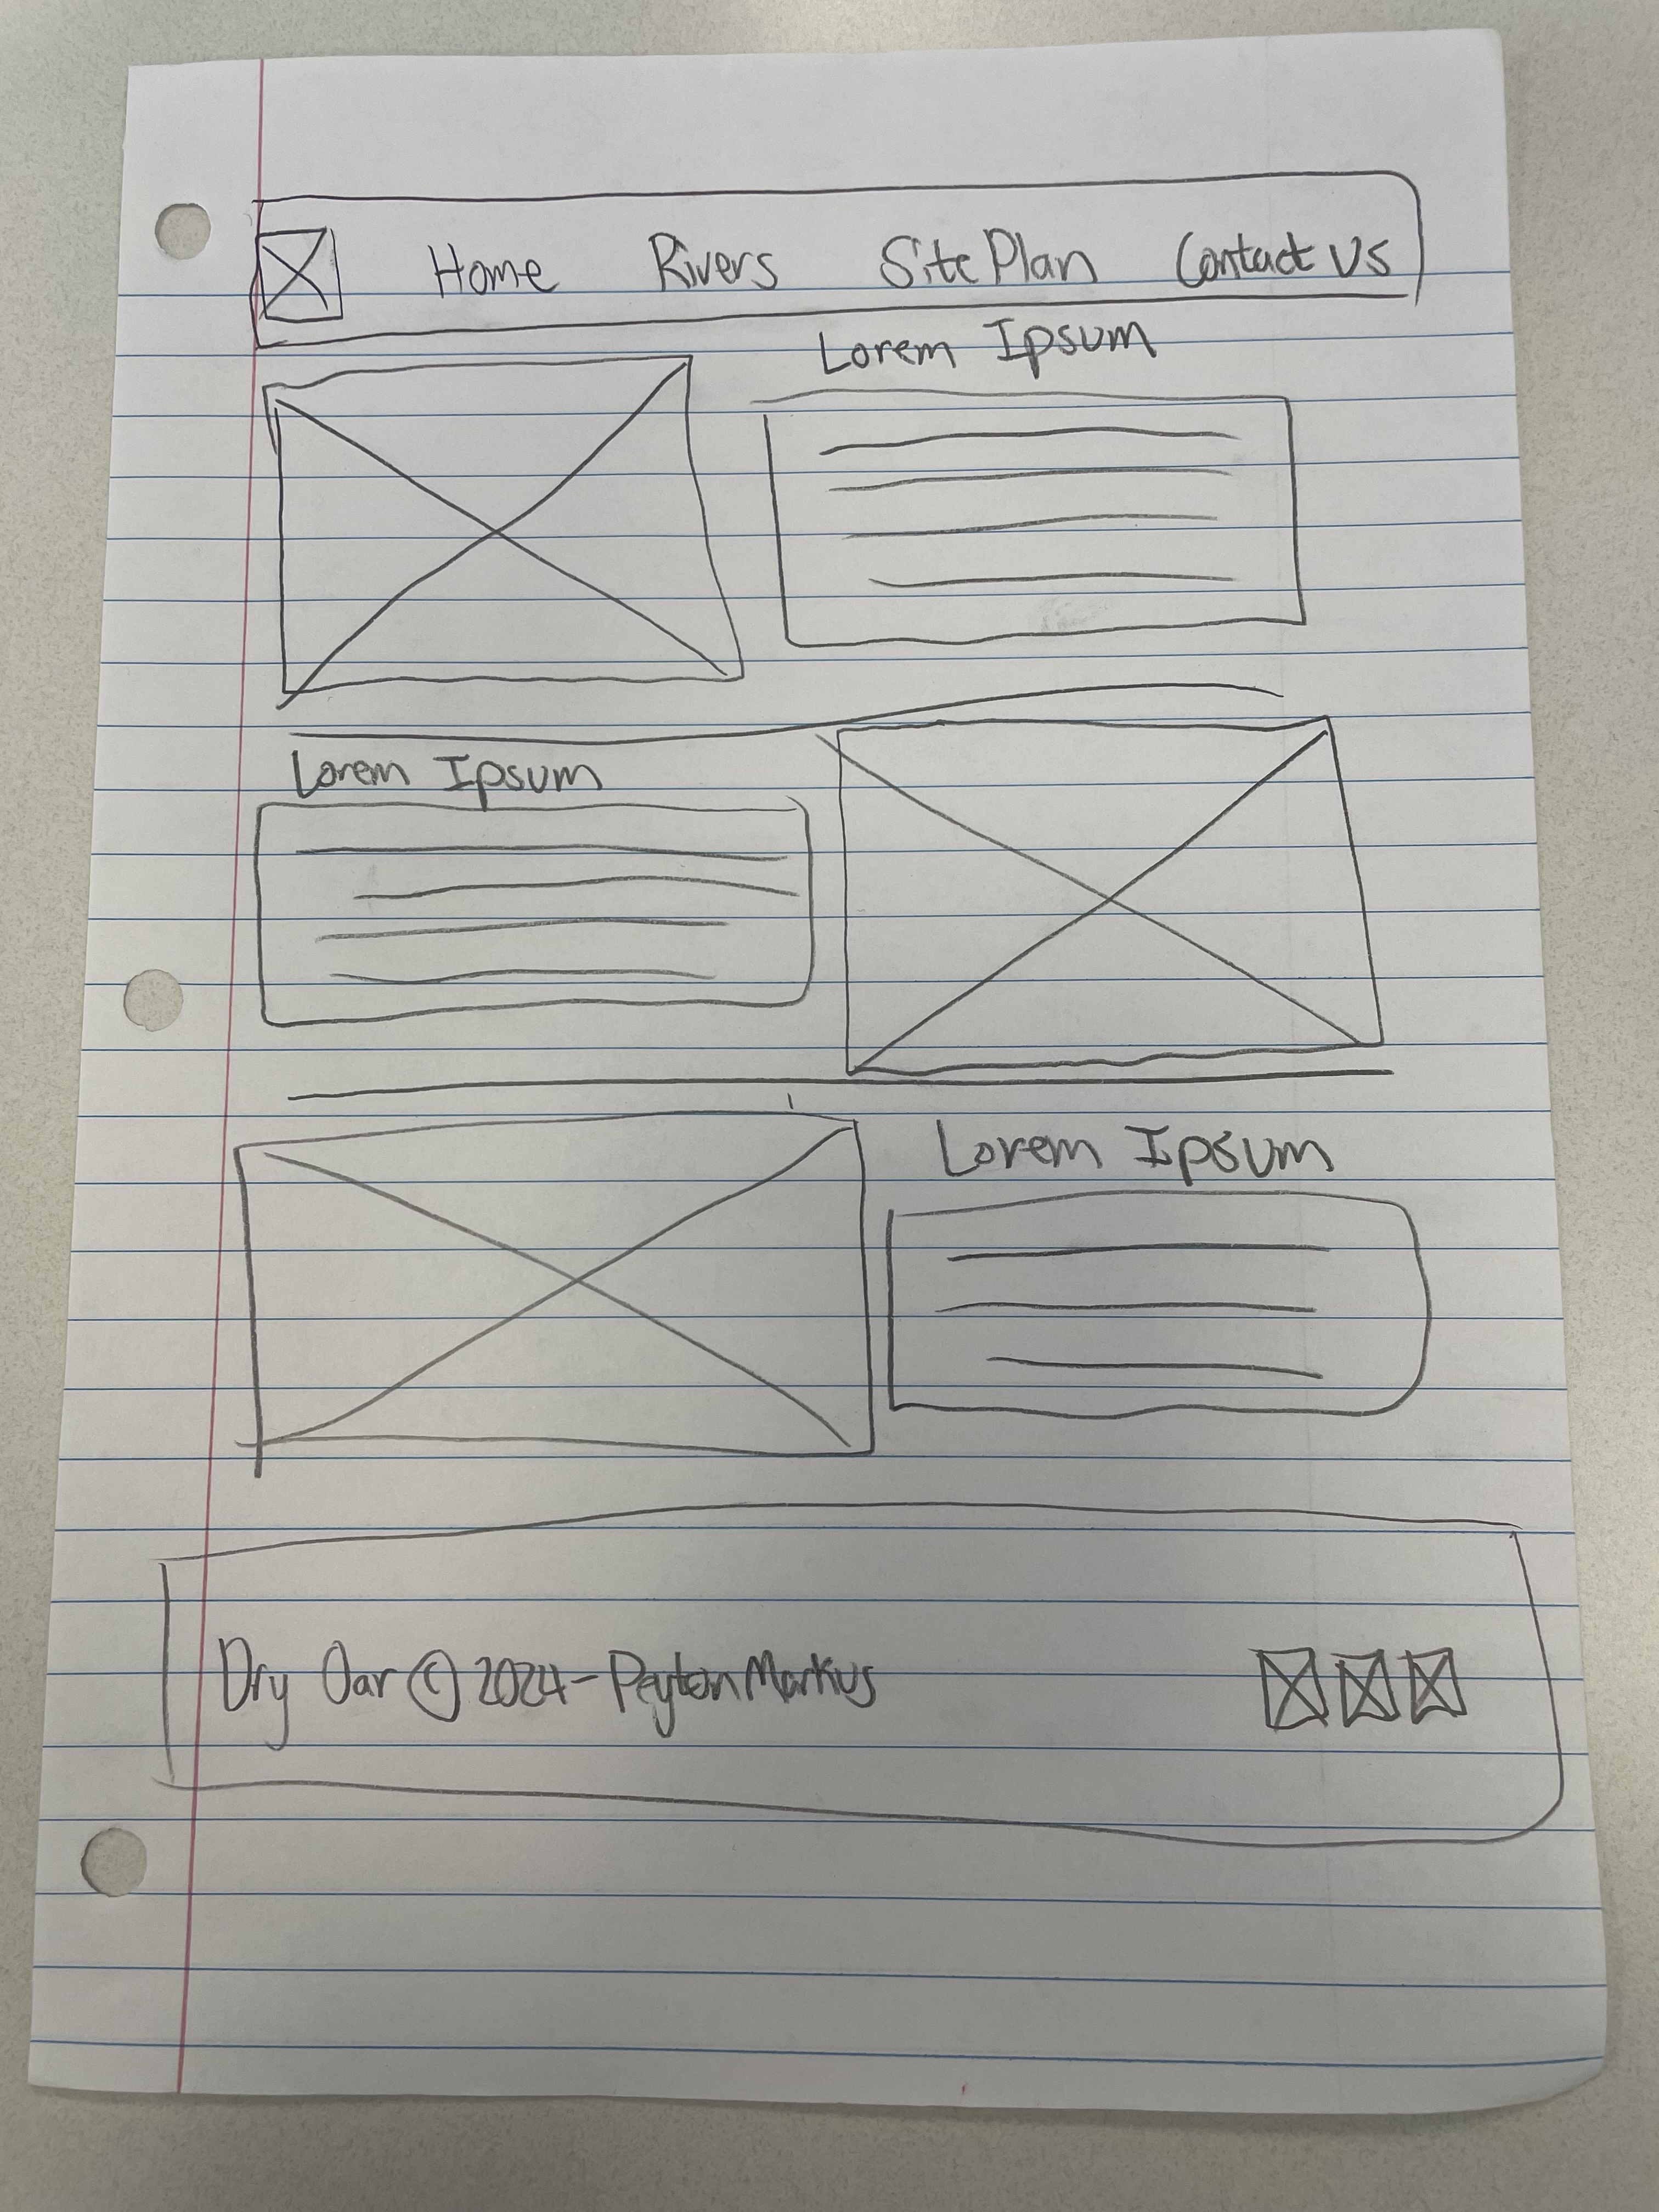 Home Rivers Site Plan Contact Us
Lorem Ipsum
Lorem Ipsum
Lorem Ipsum
Dry Oar © 2024 - Peyton Markus